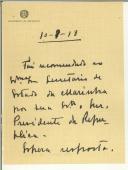 10-8-18
Foi recomendado ao
Secretário de
Estado da Marinha
por sua Exª., Snr.
Presidente da Repu
blica.
Espera resposta.